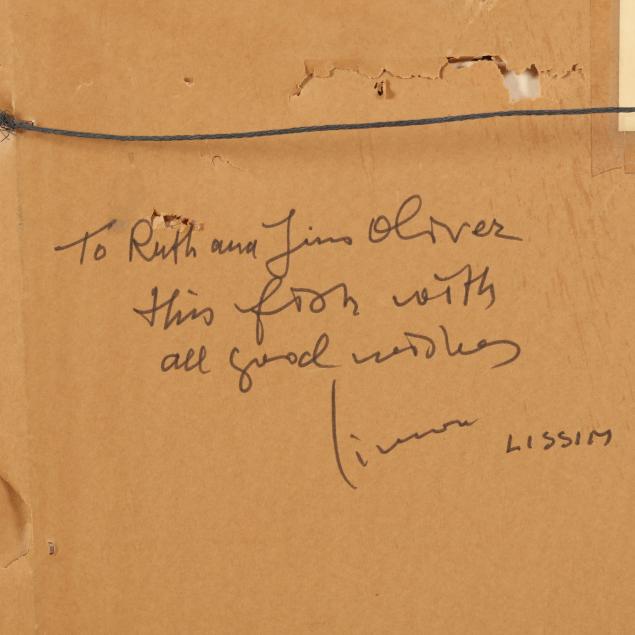 To Ruth and Jim Oliver
this fish with
all good wishes
Simon LISSIM